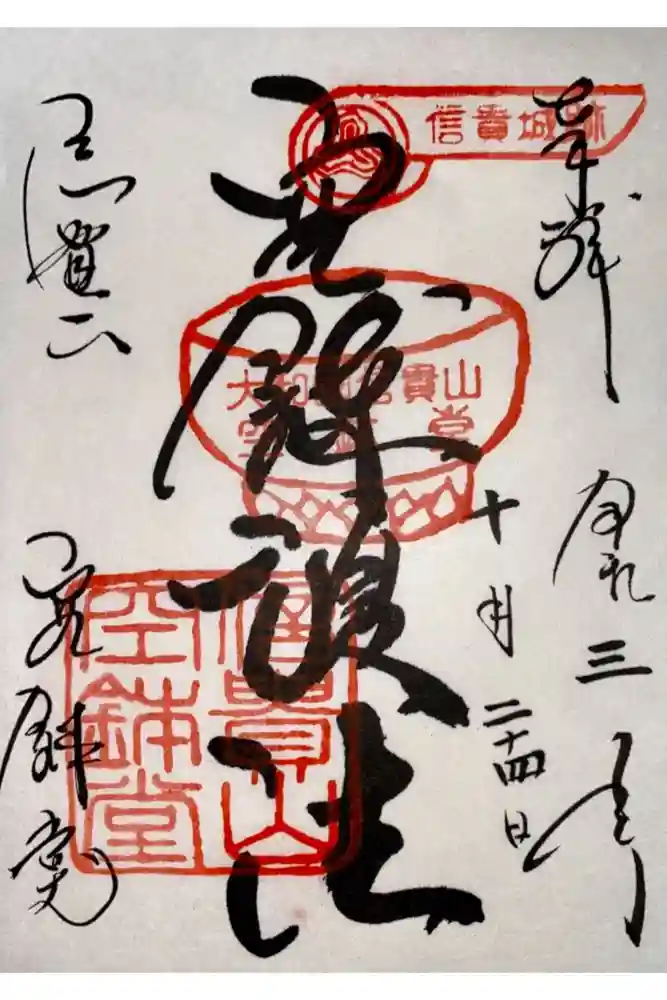 奉拝
令和三年
十月二十四日
信貴城跡
空鉢護法
大和 信貴山
空鉢堂
信貴山
空鉢堂
信貴山
空鉢堂